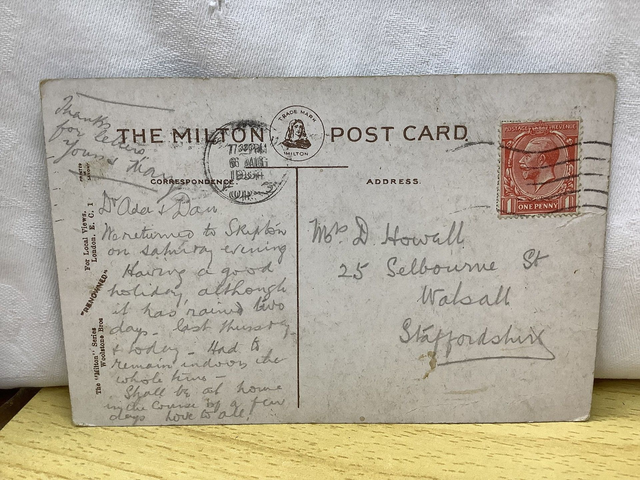 Thanks
for letters.
Yours
THE MILTON POST CARD
TRADE MARK
MILTON
CORRESPONDENCE.
ADDRESS.
POSTAGE REVENUE
ONE PENNY
The "Milton" Series
Woolstone Bros
"RENOWNED"
For Local Views.
London, E.C.1
Dr Ada & Dan
We returned to Skipton
on saturday evening
Having a good
holiday, although
it has rained two
days - last thursday
& today - Had to
remain indoors the
whole time -
Shall be at home
in the course of a few
days love to all!
Mrs D. Howell
25 Selbourne St
Walsall
Staffordshire